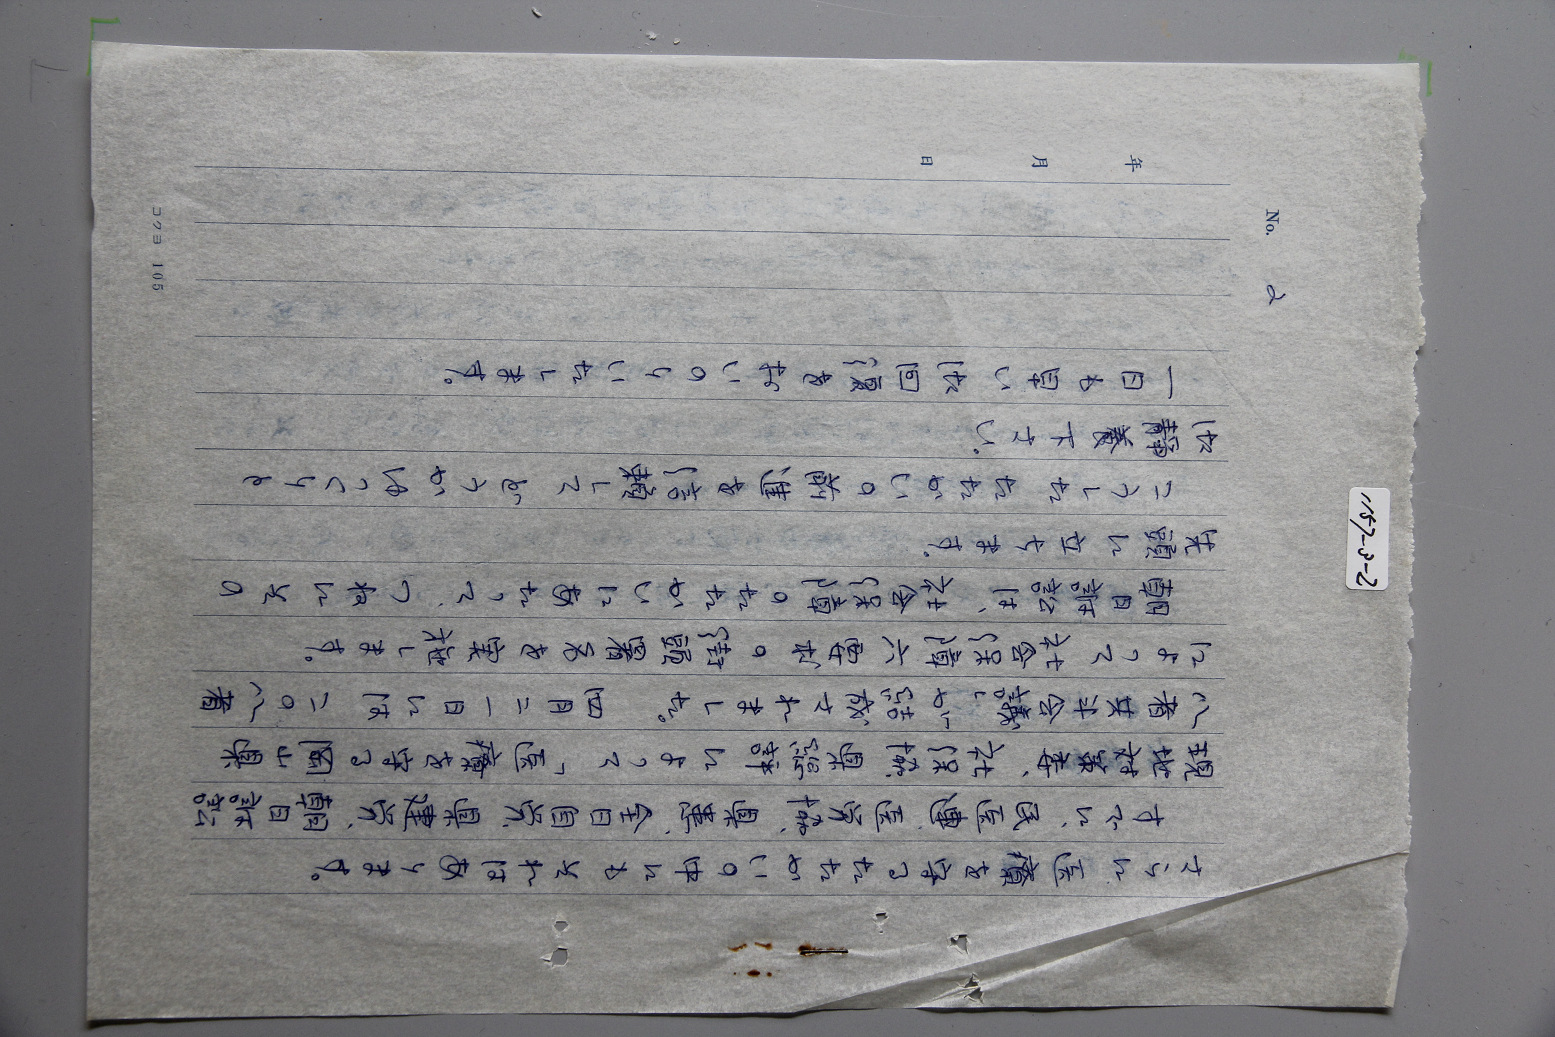 No. 2
年 月 日
さらに、医療を守るたたかいの中にもそれはあります。
すでに、民医連、医労協、県連、全日自労、県建労、朝日訴訟
現地対策委、社保協、県評等によって「医療を守る岡山県
八者共斗会議」が結成されました。四月二一日にはこの八者
によって社会保障六団体の請願署名を実施します。
朝日訴訟は、社会保障のたたかいにあたって、つねにその
先頭に立ちます。
こうしたたたかいの前進を信頼して、どうかゆっくりと
御静養下さい。
一日も早い御回復をおいのりいたします。
コクヨ 105
1157-3-2